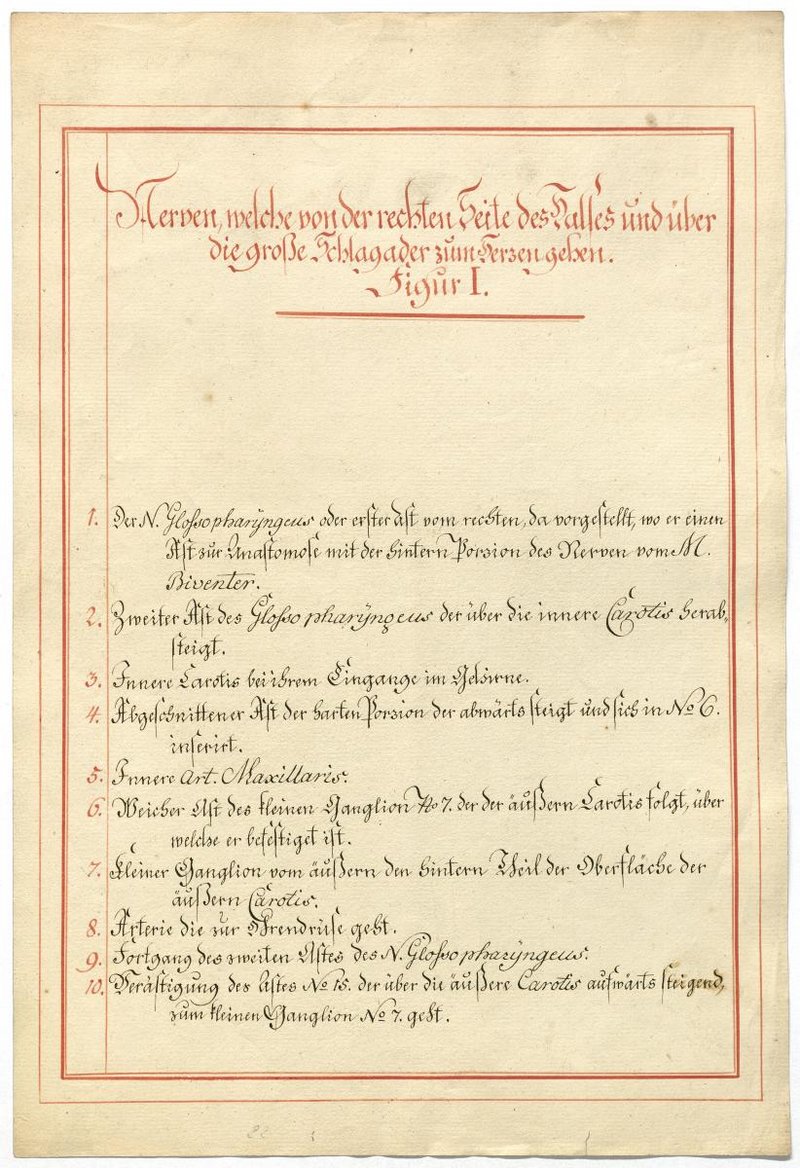 Nerven, welche von der rechten Seite des Halses und über
die große Schlagader zum Herzen gehen.
Figur I.
1. Der N. Glossopharÿngeus oder erster Ast vom rechten, da vorgestellt, wo er einen
Ast zur Anastomose mit der hintern Porzion des Nerven vom M.
Biventer.
2. Zweiter Ast des Glossopharÿngeus der über die innere Carotis herab-
steigt.
3. Innere Carotis bei ihrem Eingange im Gehirne.
4. Abgeschnittener Ast der harten Porzion der abwärts steigt und sich in No 6.
inserirt.
5. Innere Art. Maxillaris.
6. Weicher Ast des kleinen Ganglion No 7. der der äußern Carotis folgt, über
welche er befestiget ist.
7. Kleiner Ganglion vom äußern den hintern Theil der Oberfläche der
äußern Carotis.
8. Arterie die zur Ohrendrüse geht.
9. Fortgang des zweiten Astes des N. Glossopharÿngeus.
10. Verästigung des Astes No 15. der über die äußere Carotis aufwärts steigend,
zum kleinen Ganglion No 7. geht.